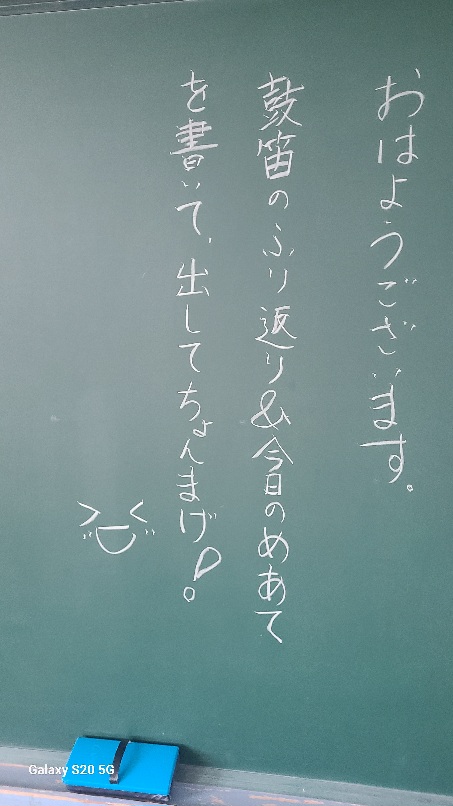 おはようございます。
鼓笛のふり返り&今日のめあて
を書いて、出してちょんまげ!
Galaxy S20 5G